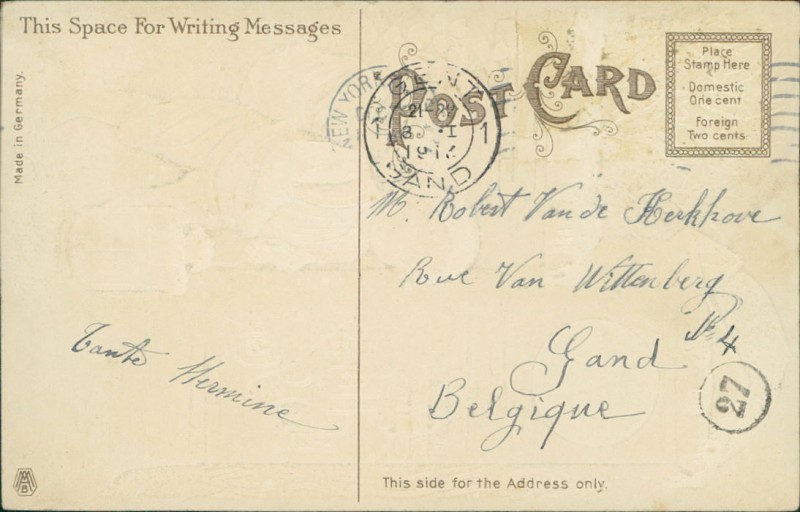 This Space For Writing Messages
POST CARD
Place
Stamp Here
Domestic
One cent
Foreign
Two cents
Made in Germany.
NEW YORK
GENT
1
GAND
M. Robert Van de Kerkhove
Rue Van Wittenberg
No 4
Gand
Belgique
27
Tante Hermine
This side for the Address only.